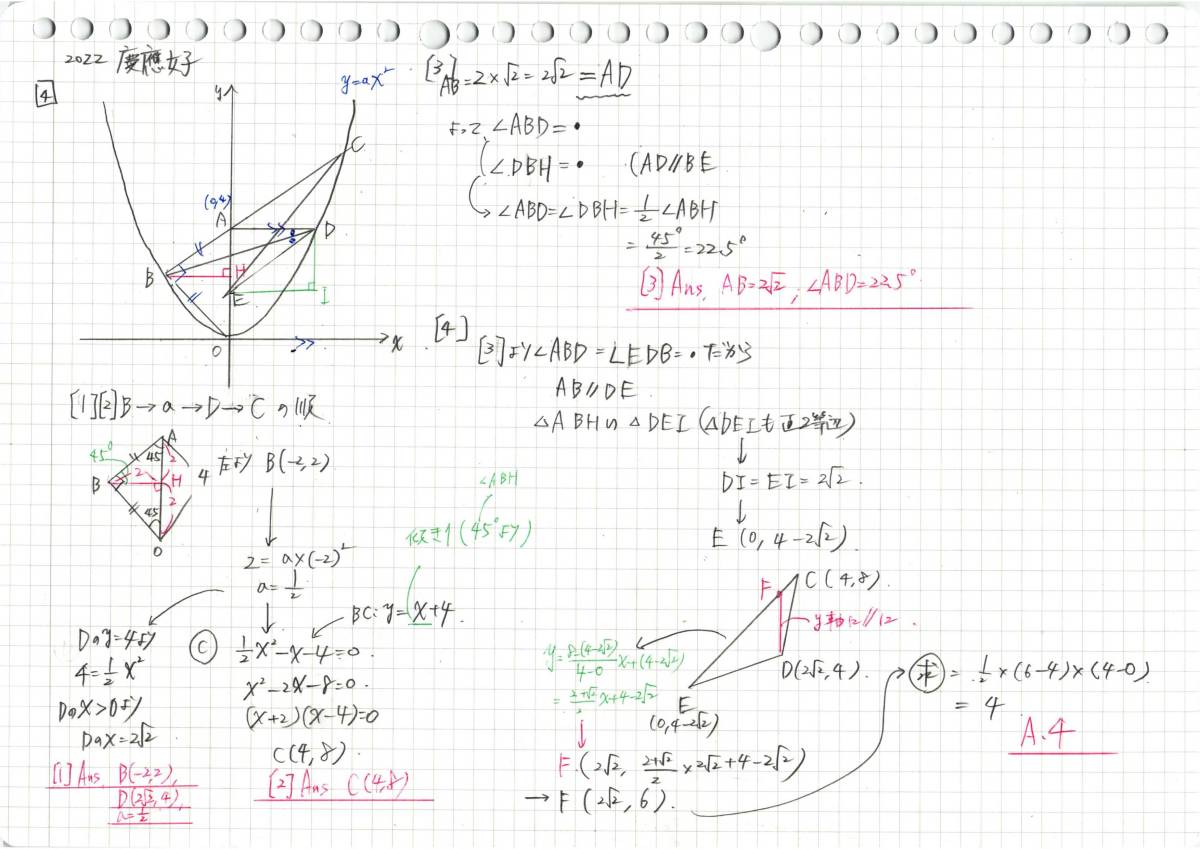 2022 慶應女子
4
y
y=ax²
C
(0,4)
A
D
B
H
E
I
O
x
[1][2] B→a→D→Cの順
45°
A
45
2
B
2
H
4
2
45
O
左より B(-2,2)
2=a×(-2)²
a=1/2
Dのy=4より
4=1/2x²
Dのx>0より
Dのx=2√2
[1] Ans B(-2,2),
D(2√2,4),
a=1/2
C
BC:y=x+4
傾き1(45°より)
∠ABH
1/2x²-x-4=0
x²-2x-8=0
(x+2)(x-4)=0
C(4,8)
[2] Ans C(4,8)
[3] AB=2×√2=2√2=AD
よって∠ABD=•
∠DBH=• (AD//BE
→∠ABD=∠DBH=1/2∠ABH
=45°/2=22.5°
[3] Ans, AB=2√2, ∠ABD=22.5°
[4]
[3]より∠ABD=∠EDB=•だから
AB//DE
△ABH∽△DEI(△DEIも直2等辺)
DI=EI=2√2
E(0,4-2√2)
F
C(4,8)
y軸に//に
D(2√2,4)
E
(0,4-2√2)
y=8-(4-2√2)/4-0x+(4-2√2)
=2+√2/2x+4-2√2
F(2√2, 2+√2/2×2√2+4-2√2)
→F(2√2,6)
求=1/2×(6-4)×(4-0)
=4
A.4